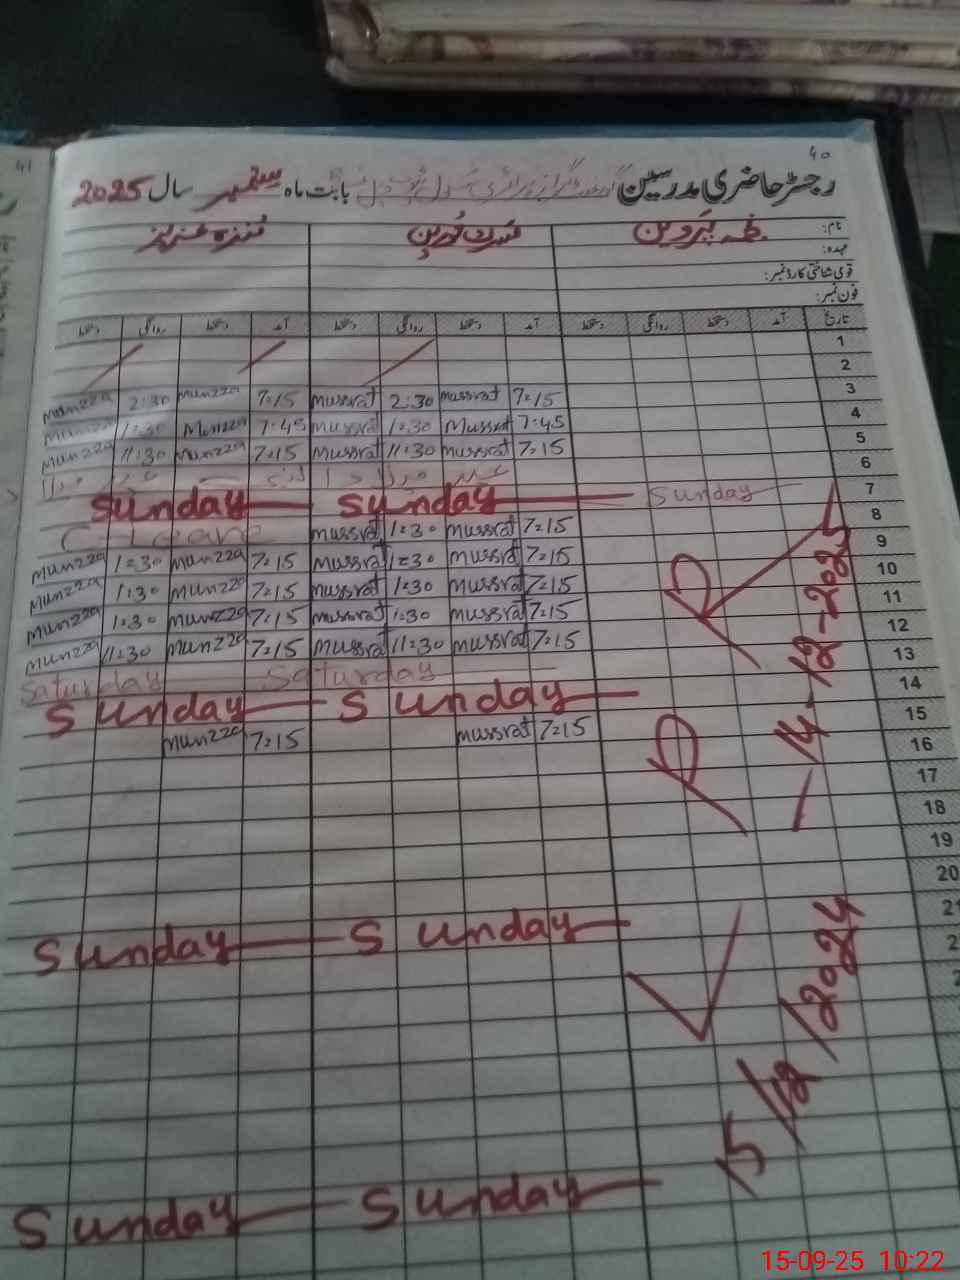 ۴۰
رجسٹر حاضری مدرسین بابت ماہ ستمبر سال 2025
نام: پروین مسرت نورین منزہ عزیز
عہدہ:
قومی شناختی کارڈ نمبر:
فون نمبر:
تاریخ آمد دستخط روانگی دستخط آمد دستخط روانگی دستخط آمد دستخط روانگی دستخط
1
2
Munzza 2:30 Munzza 7:15 Mussrat 2:30 Mussrat 7:15 3
Munzza 1:30 Munzza 7:45 Mussrat 1:30 Mussrat 7:45 4
Munzza 11:30 Munzza 7:15 Mussrat 11:30 Mussrat 7:15 5
6
Sunday Sunday Sunday 7
Mussrat 1:30 Mussrat 7:15 8
Munzza 1:30 Munzza 7:15 Mussrat 1:30 Mussrat 7:15 9
Munzza 1:30 Munzza 7:15 Mussrat 1:30 Mussrat 7:15 10
Munzza 1:30 Munzza 7:15 Mussrat 1:30 Mussrat 7:15 11
Munzza 11:30 Munzza 7:15 Mussrat 11:30 Mussrat 7:15 12
Saturday Saturday 13
Sunday Sunday 14
Munzza 7:15 Mussrat 7:15 15
16
17
18
19
20
21
Sunday Sunday
Sunday Sunday
14-12-2025
15/12/2024
41
15-09-25 10:22